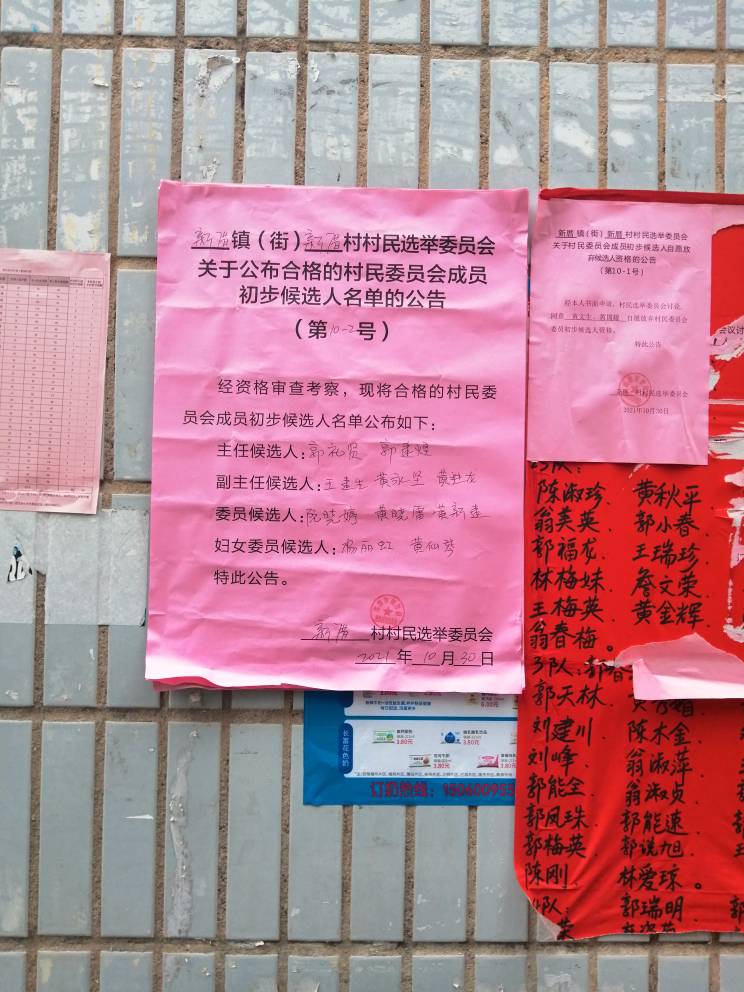 新厝镇（街）新厝村村民选举委员会
关于公布合格的村民委员会成员
初步候选人名单的公告
（第10-2号）
经资格审查考察，现将合格的村民委
员会成员初步候选人名单公布如下：
主任候选人：郭礼贤 郭建煌
副主任候选人：王建生 黄永坚
委员候选人：阮晓婷 黄晓雷 黄新建
妇女委员候选人：杨丽虹 黄仙琴
特此公告。
新厝 村村民选举委员会
2021年10月30日
新厝镇（街）新厝村村民选举委员会
关于村民委员会成员初步候选人自愿放
弃候选人资格的公告
（第10-1号）
经本人书面申请，村民选举委员会讨论，
同意 黄文生、 自愿放弃村民委员会
委员初步候选人资格。
特此公告
新厝 村村民选举委员会
2021年10月30日
会议讨
陈淑珍、黄秋平
翁芙英、郭小春
郭福龙、王瑞珍
林梅妹、詹文荣
王梅英、黄金辉
翁春梅。
3队：郭春
郭天林、
刘建川、陈木金
刘峰、翁淑萍
郭能全、翁淑贞
郭凤珠、郭能速
郭梅英、郭说旭
陈刚、林爱琼。
4队：郭瑞明
荣
长富花色奶
6.00元
3.80元
3.80元
3.80元
3.80元
订奶热线：150600955